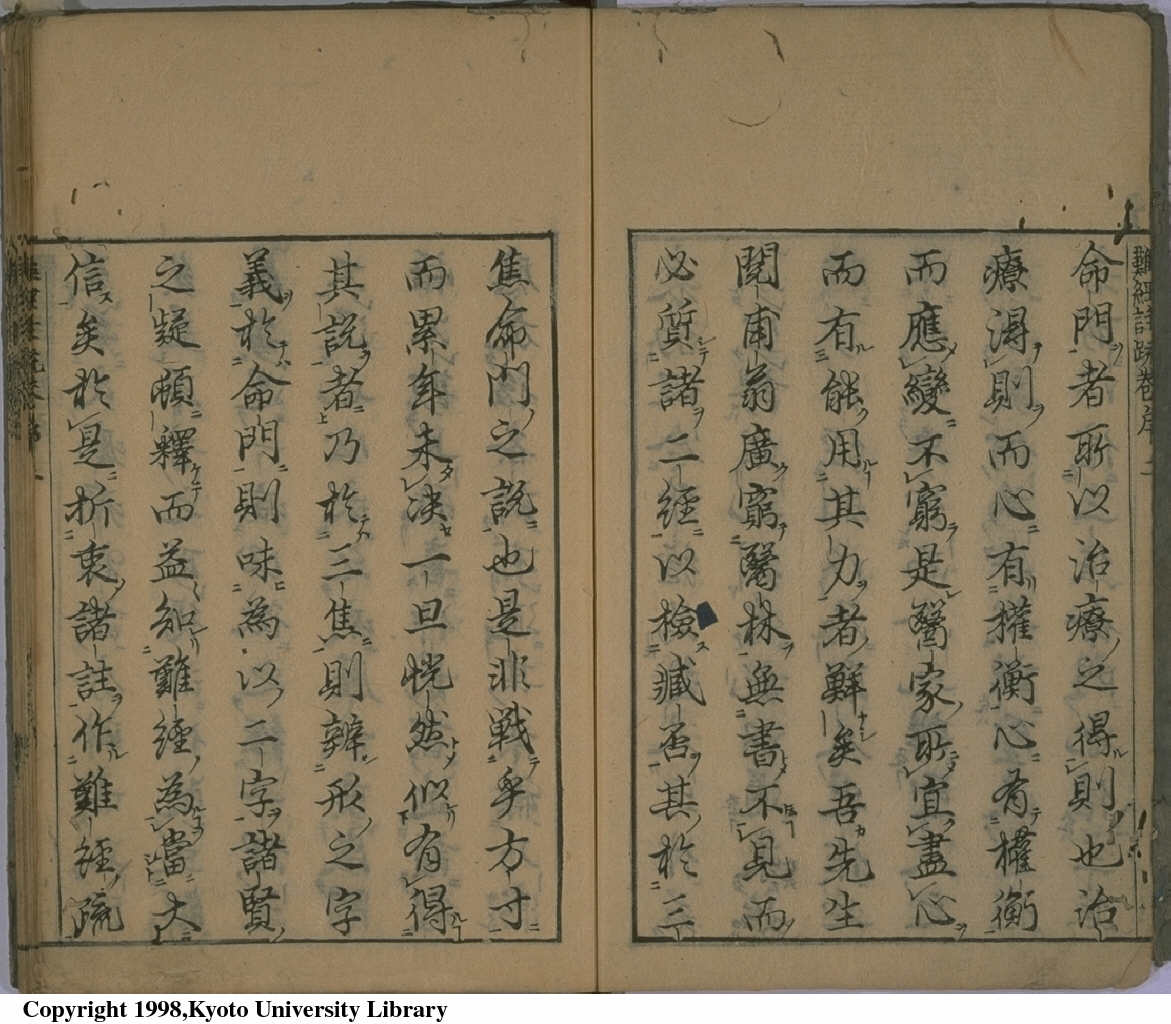 難經註疏卷序 二
命門者所以治療之得則也治
療得則而心有權衡心有權衡
而應變不窮是醫家所宜盡心
而有能用其力者鮮矣吾先生
閱甫翁廣窮醫林無書不見而
必質諸二經以檢臧否其於三
焦命門之說也是非戰乎方寸
而累年未决一旦恍然似有得
其說者乃於三焦則辨形之字
義於命門則味為以二字諸賢
之疑頓釋而益知難經為當大
信矣於是折衷諸註作難經疏
Copyright 1998,Kyoto University Library